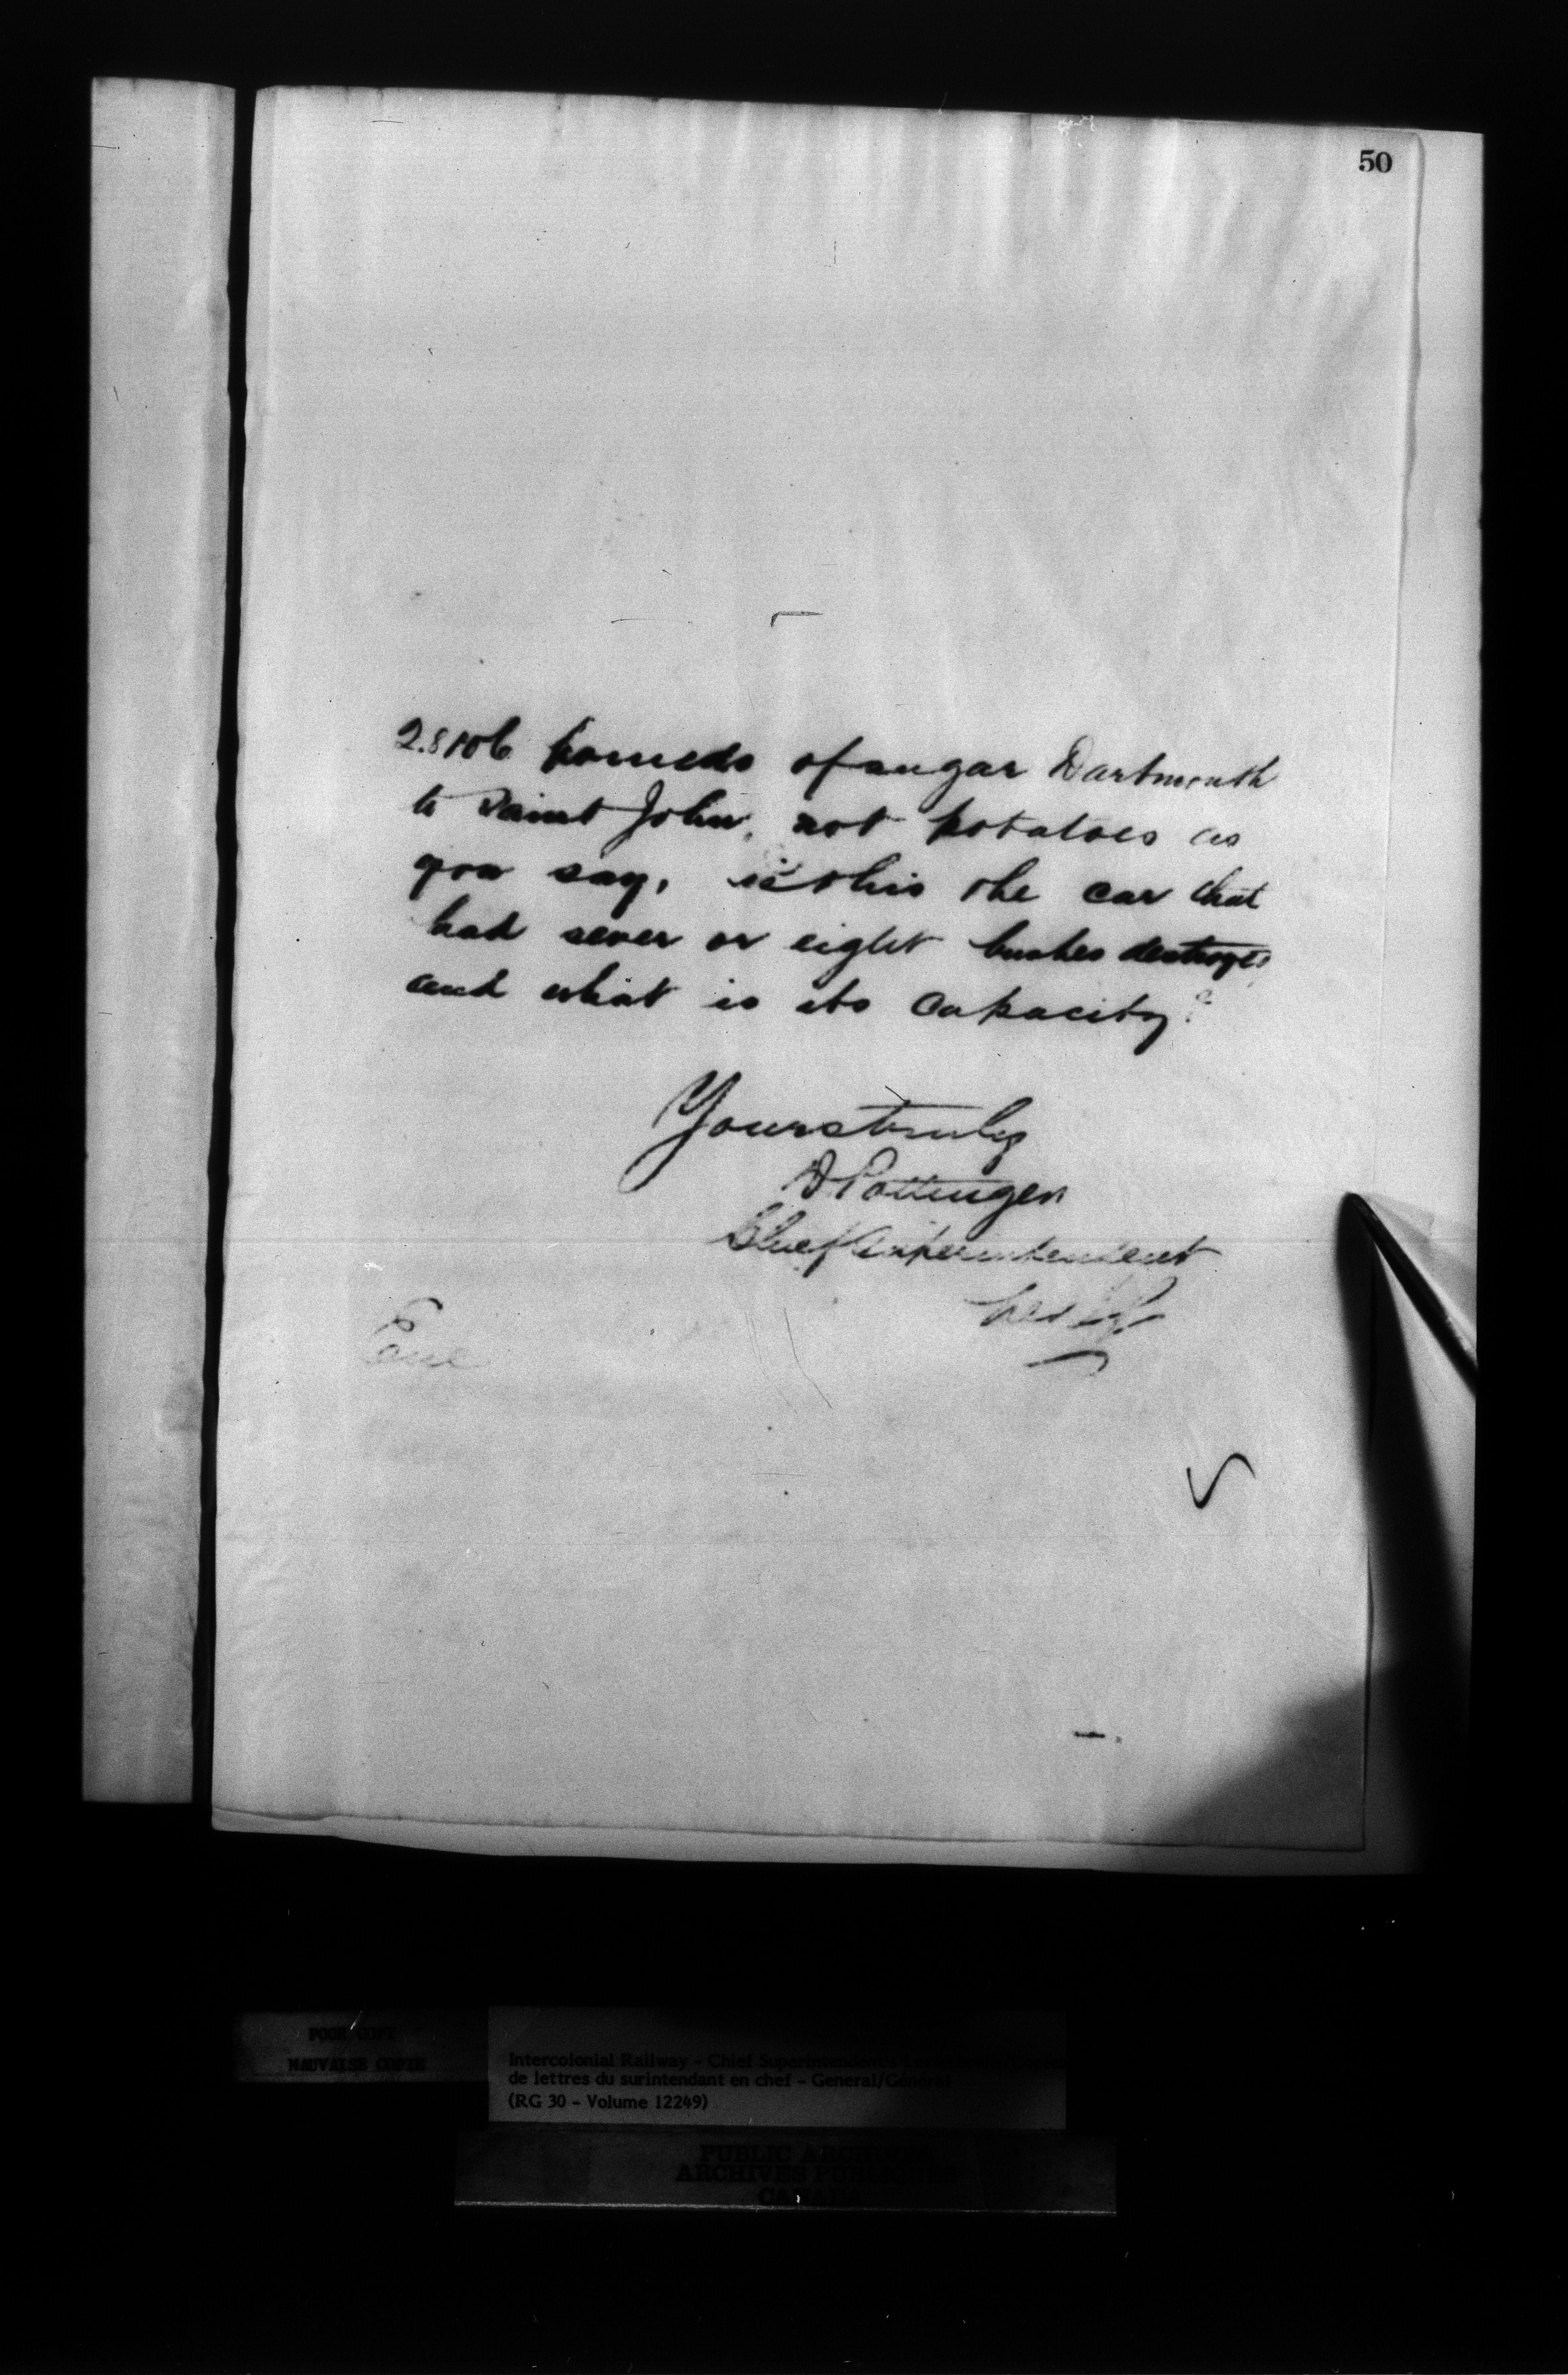 50
28106 pounds of sugar Dartmouth
to Saint John, not potatoes as
you say, is this the car that
had seven or eight bushes destroyed
and what is its capacity?
Yours truly
D Pottinger
Chief Superintendent
Enc
POOR COPY
MAUVAISE COPIE
Intercolonial Railway - Chief Superintendent's
de lettres du surintendant en chef - General/Général
(RG 30 - Volume 12249)
PUBLIC ARCHIVES
ARCHIVES PUBLIQUES
CANADA